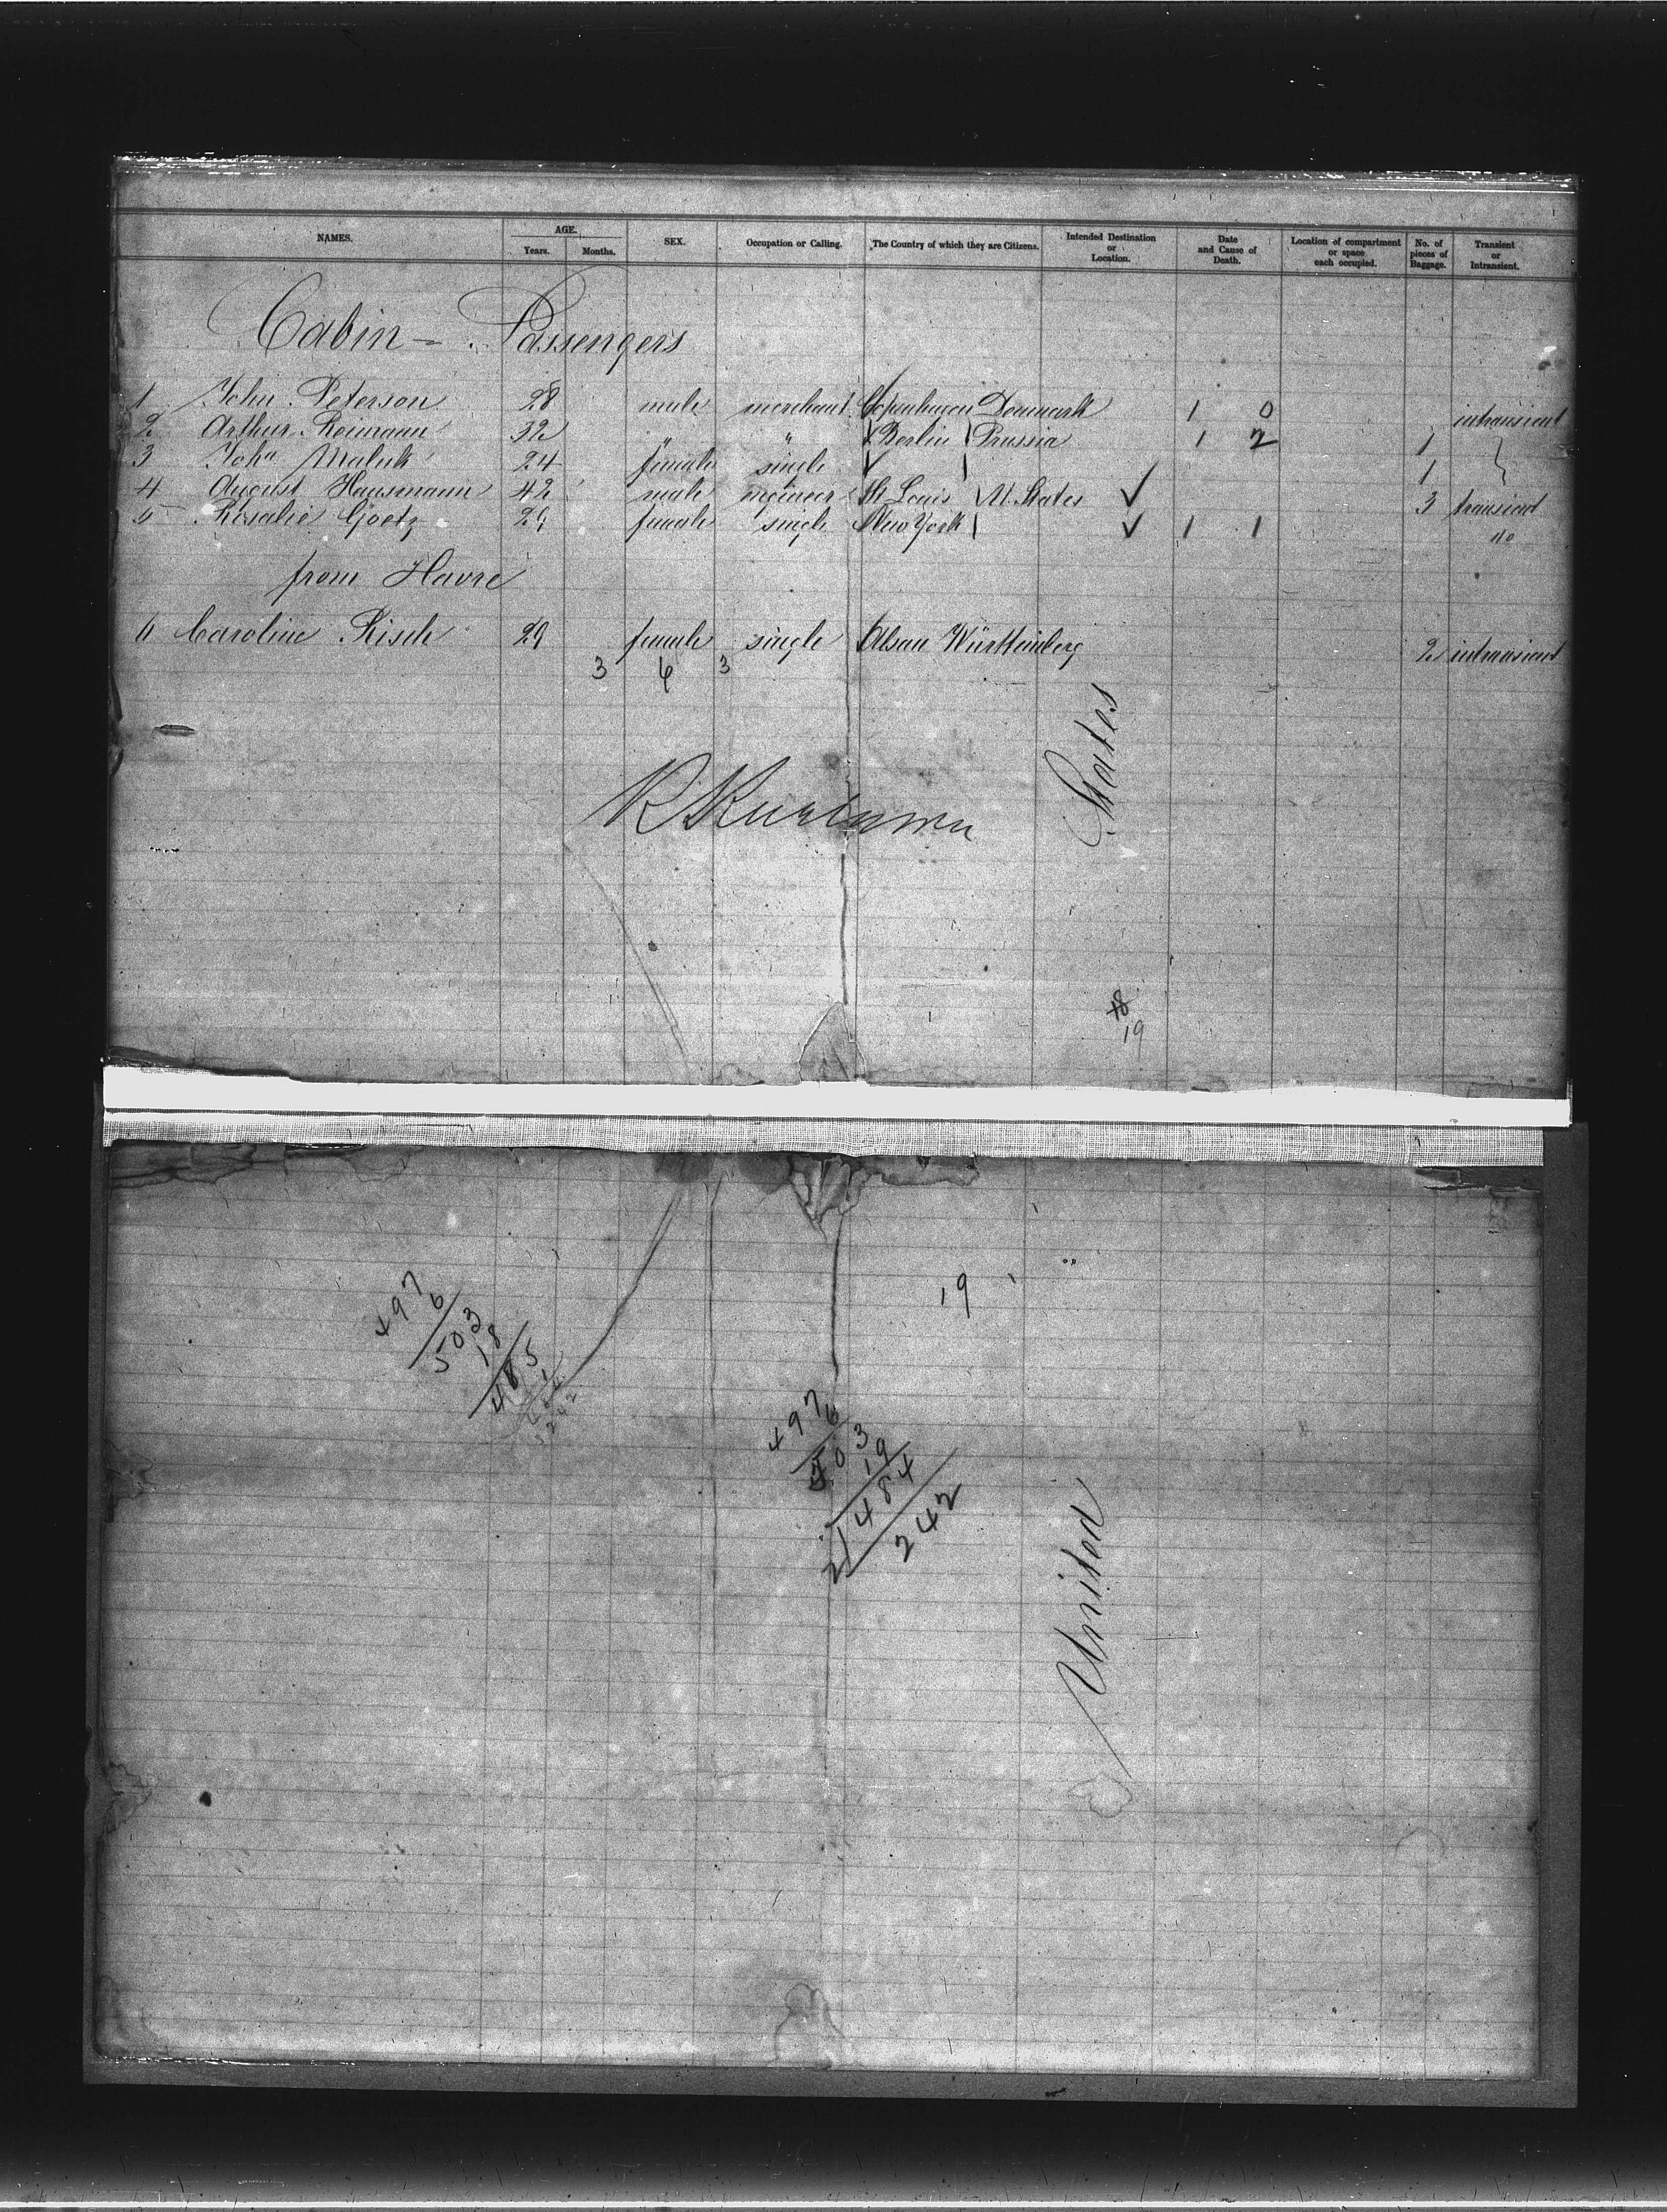 NAMES. AGE. Years. Months. SEX. Occupation or Calling. The Country of which they are Citizens. Intended Destination or Location. Date and Cause of Death. Location of compartment or space each occupied. No. of pieces of Baggage. Transient or Intransient.
Cabin - Passengers
1 John Peterson 28 male merchant Copenhagen Denmark 1 0 intransient
2 Arthur Reimann 32 " " Berlin Prussia 1 2 1
3 Joha 24 female single 1
4 August Hausmann 42 male engineer St Louis U. States 3 transient
5 Rosalie Goetz 29 female single New York 1 1 do
from Havre
6 Caroline Risch 29 female single Württemberg 2 intransient
3 6 3
States
18
19
19
497
6
503
18
485
1
242
497
6
503
19
2 484
242
United